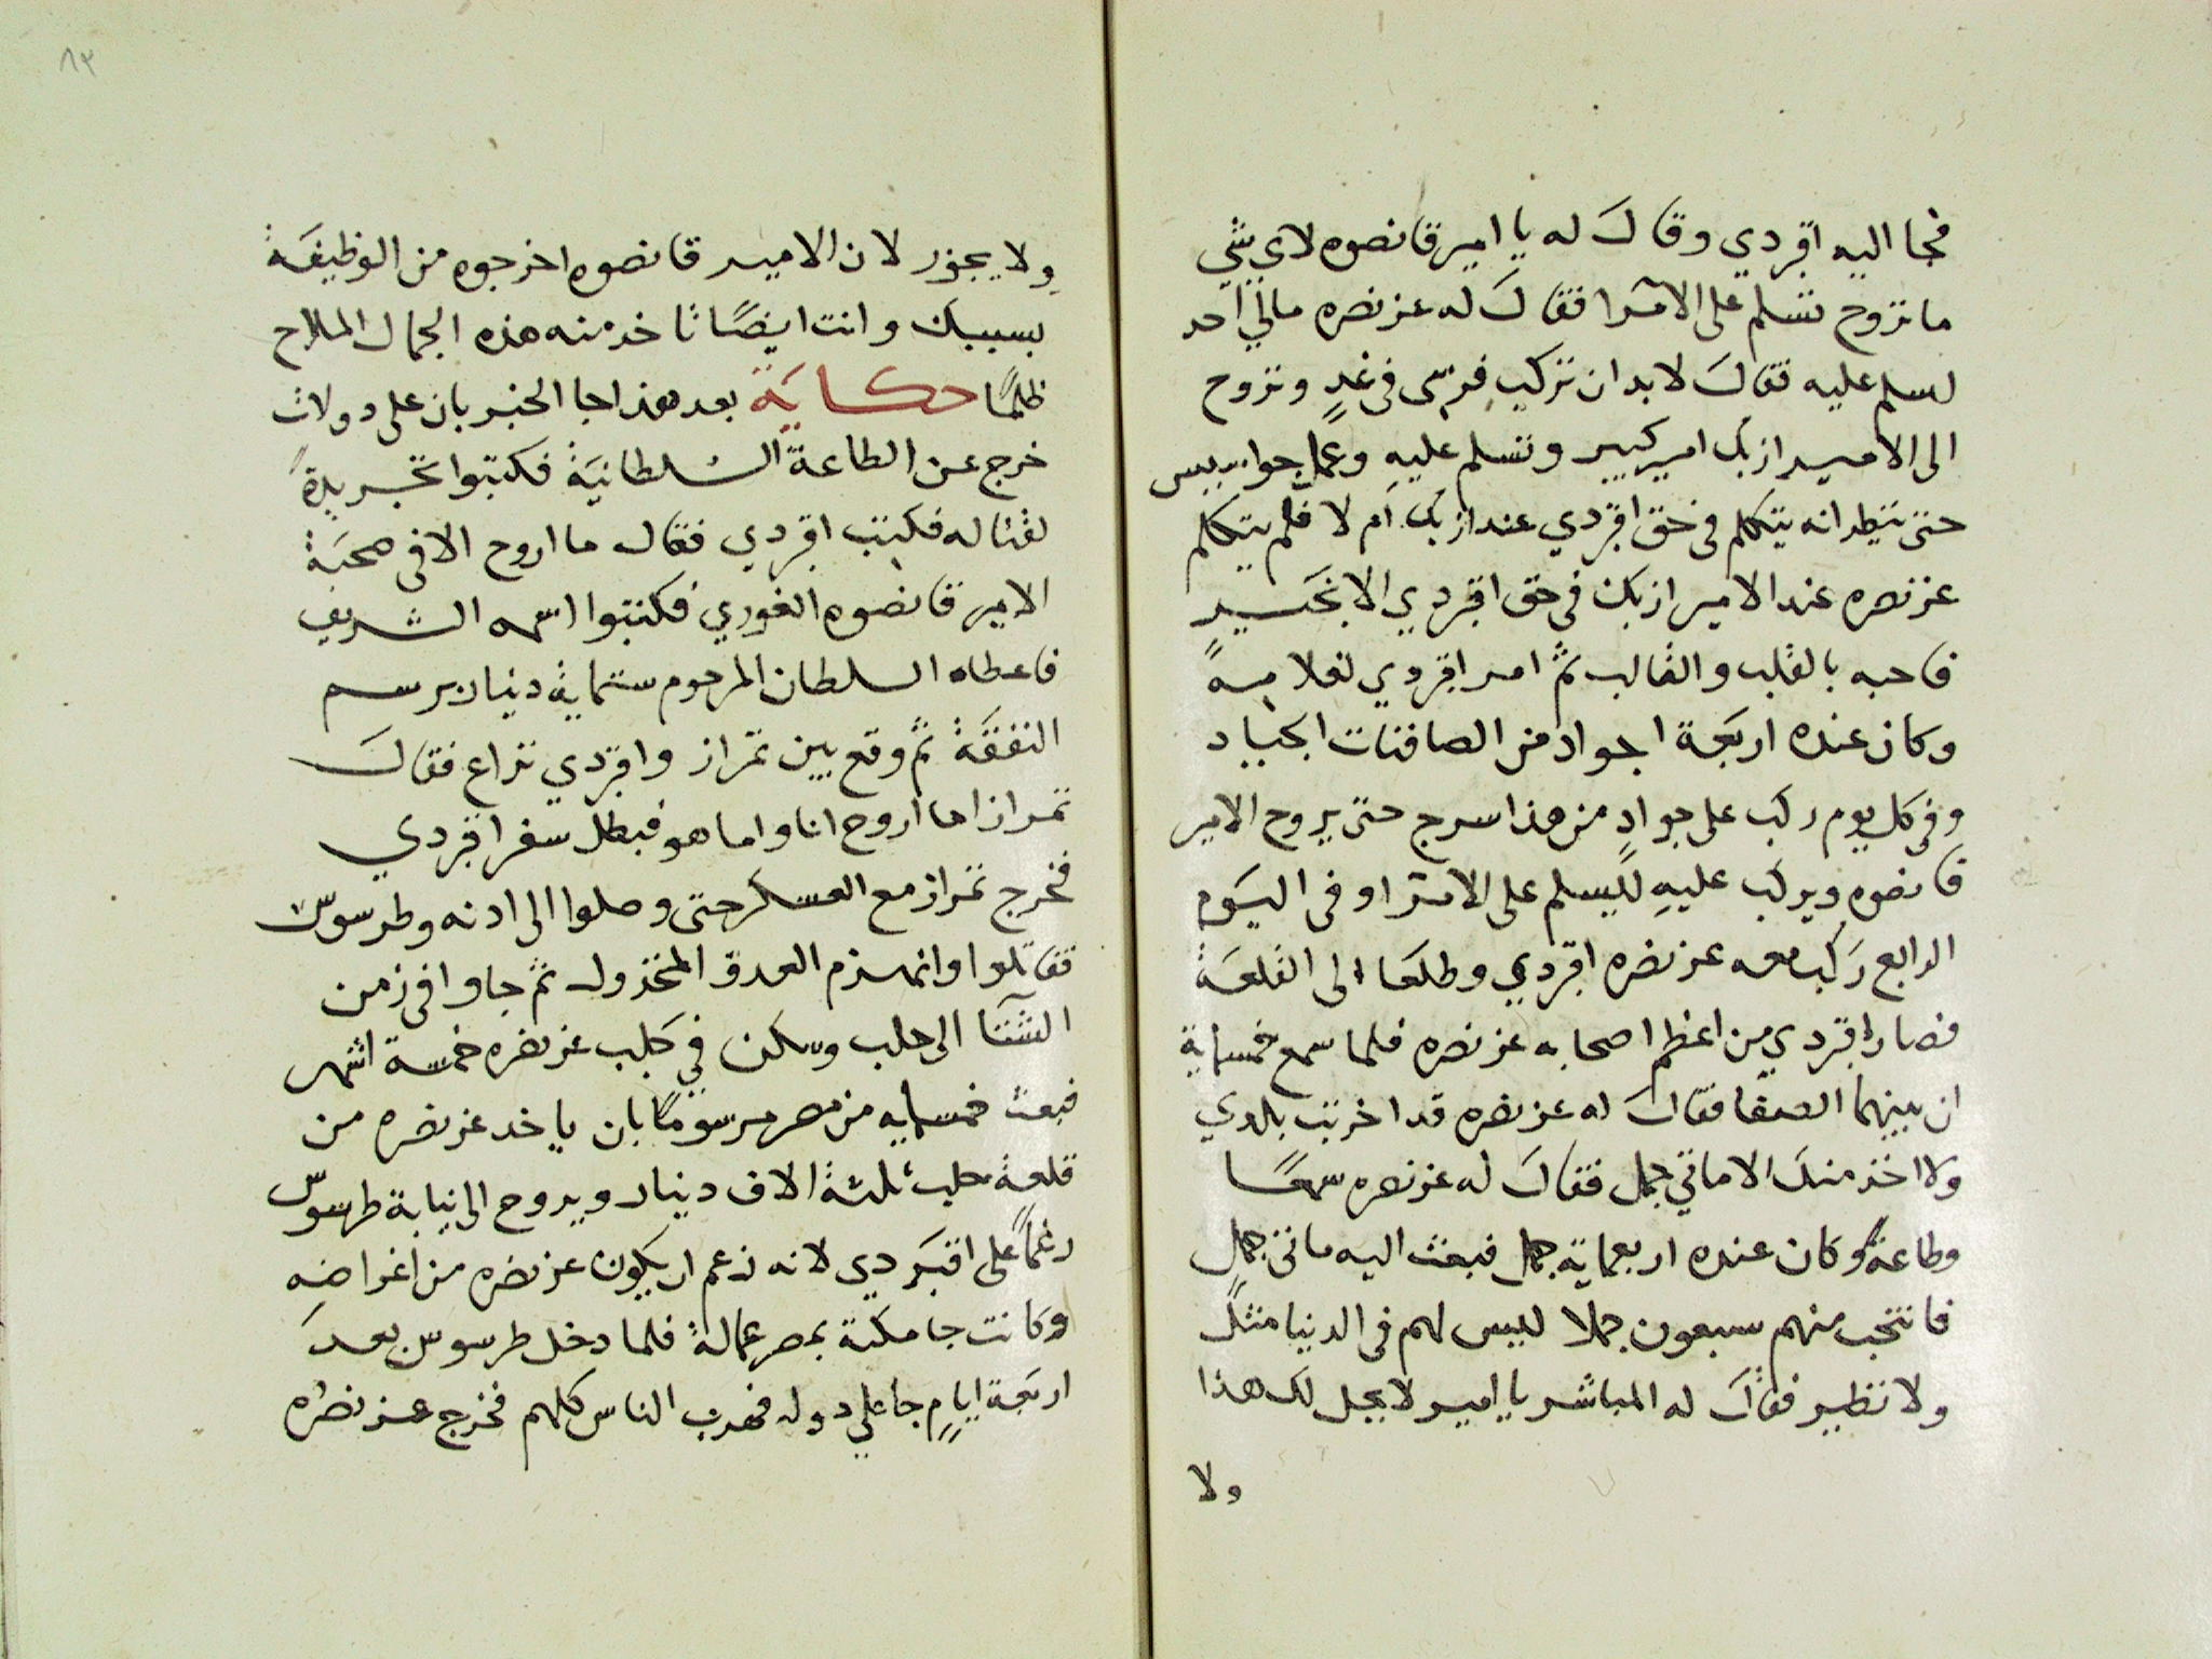 فجا اليه اقبردي وقال له يا امير قانصوه لاي شي
ما تروح تسلم على الامرا فقال له عز نصره مالي احد
اسلم عليه فقال لا بد ان تركب فرسى فى غدٍ وتروح
الى الامير ازبك امير كبير وتسلم عليه وعمل جواسيس
حتى ينظر انه يتكلم فى حق اقبردي عند ازبك ام لا فلم يتكلم
عز نصره عند الامير ازبك فى حق اقبردي الا بخير
فاحبه بالقلب والقالب ثم امر اقبردي لغلامه
وكان عنده اربعة اجواد من الصافنات الجياد
وفى كل يوم ركب على جوادٍ من هذا سرج حتى يروح الامير
قانصوه ويركب عليه ليسلم على الامرا وفى اليوم
الرابع ركب معه عز نصره اقبردي وطلعا الى القلعة
فصار اقبردي من اعظم اصحابه عز نصره فلما سمع خمسماية
ان بينهما الصفا فقال له عز نصره قد اخربت بلادي
ولا اخذ منك الا ماتي جمل فقال له عز نصره سمعًا
وطاعةً وكان عنده اربعماية جمل فبعث اليه ماتى جمل
فانتخب منهم سبعون جملا ليس لهم فى الدنيا مثلٌ
ولا نظير فقال له المباشر يا امير لا يحل لك هذا
ولا
٨٣
ولا يجوز لان الامير قانصوه اخرجوه من الوظيفة
بسببك وانت ايضًا تاخذ منه هذه الجمال الملاح
ظلمًا حكاية بعد هذا جا الخبر بان على دولات
خرج عن الطاعة السلطانية فكتبوا تجريدةً
لقتاله فكتب اقبردي فقال ما اروح الا فى صحبة
الامير قانصوه الغوري فكتبوا اسمه الشريف
فاعطاه السلطان المرحوم ستماية دينار برسم
النفقة ثم وقع بين تمراز واقبردي نزاع فقال
تمراز اما اروح انا واما هو فبطل سفر اقبردي
فخرج تمراز مع العسكر حتى وصلوا الى ادنه وطرسوس
فقاتلوا وانهزم العدو المخذول ثم جاوا فى زمن
الشتا الى حلب وسكن في حلب عز نصره خمسة اشهر
فبعث خمسمايه من مصر مرسومًا بان ياخذ عز نصره من
قلعة حلب ثلثة الاف دينار ويروح الى نيابة طرسوس
رغمًا على اقبردي لانه زعم ان يكون عز نصره من اغراضه
وكانت جامكية بمصر عمالة فلما دخل طرسوس بعد
اربعة ايامٍ جا علي دوله فهرب الناس كلهم فخرج عز نصره